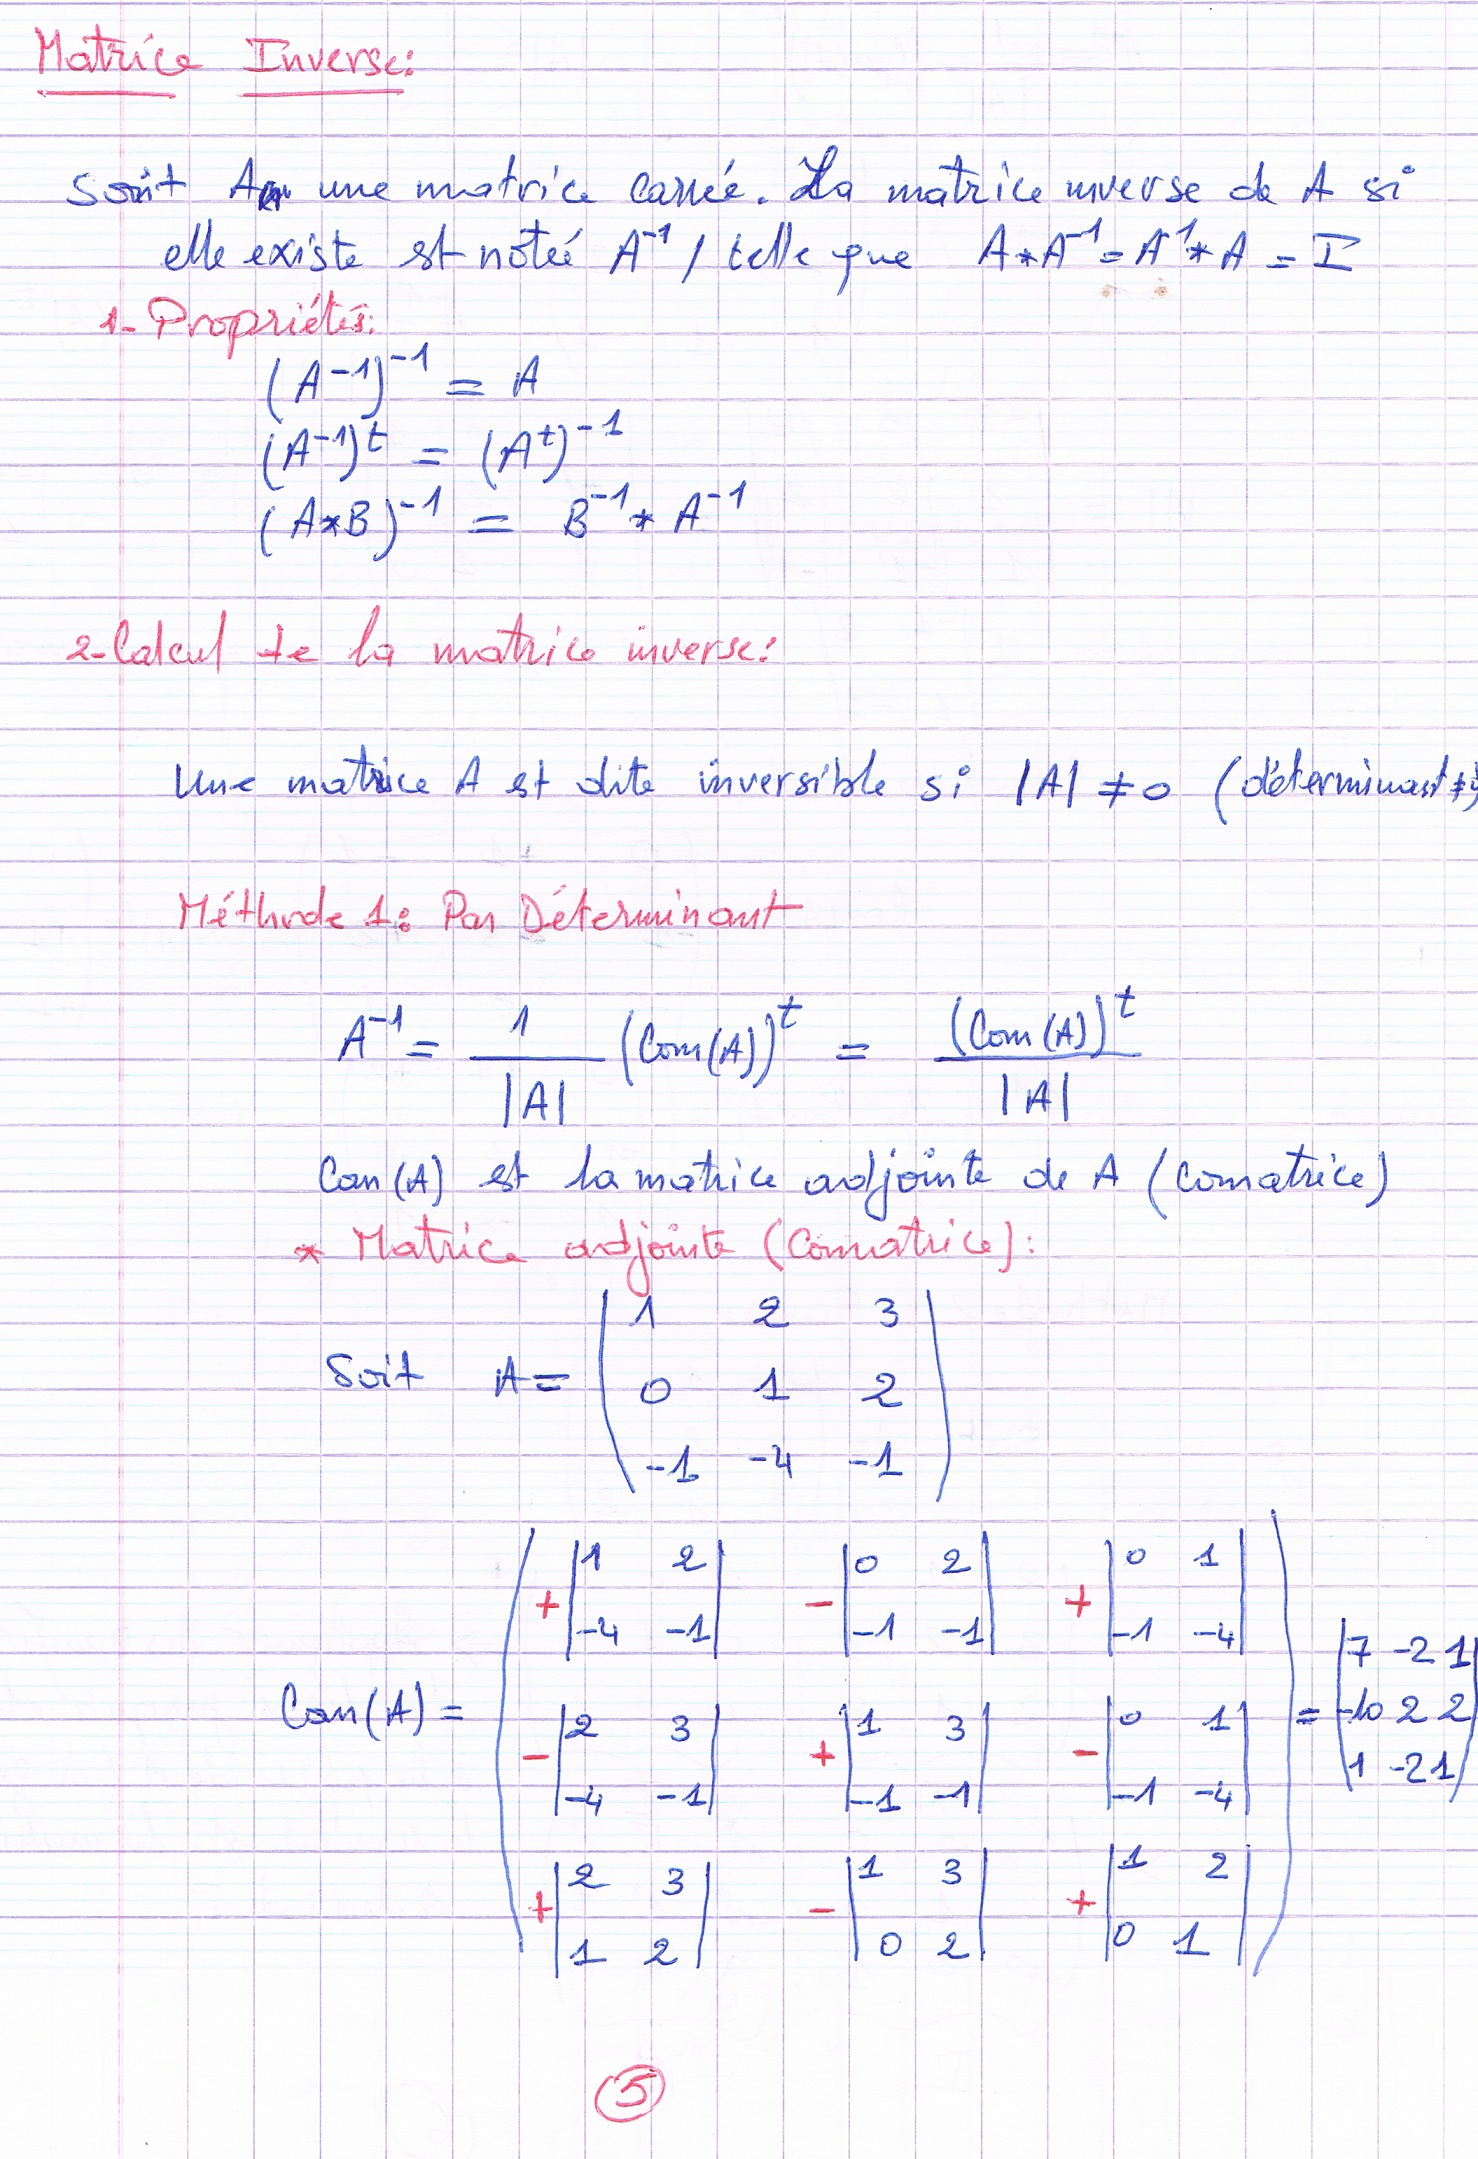 Matrice Inverse:
Soit A une matrice carrée. La matrice inverse de A si
elle existe est notée A⁻¹ / telle que A*A⁻¹ = A⁻¹*A = I
1- Propriétés:
(A⁻¹)⁻¹ = A
(A⁻¹)ᵗ = (Aᵗ)⁻¹
(A*B)⁻¹ = B⁻¹ * A⁻¹
2- Calcul de la matrice inverse:
Une matrice A est dite inversible si |A| ≠ 0 (déterminant ≠
Méthode 1: Par Déterminant
A⁻¹ = 1/|A| (Com(A))ᵗ = (Com(A))ᵗ/|A|
Com(A) est la matrice adjointe de A (Comatrice)
* Matrice adjointe (Comatrice):
1 2 3
Soit A = 0 1 2
-1 -4 -1
+ |1 2| - |0 2| + |0 1|
|-4 -1| |-1 -1| |-1 -4| |7 -2 1|
Com(A) = - |2 3| + |1 3| - |0 1| = |-10 2 2|
|-4 -1| |-1 -1| |-1 -4| |1 -2 1|
+ |2 3| - |1 3| + |1 2|
|1 2| |0 2| |0 1|
5